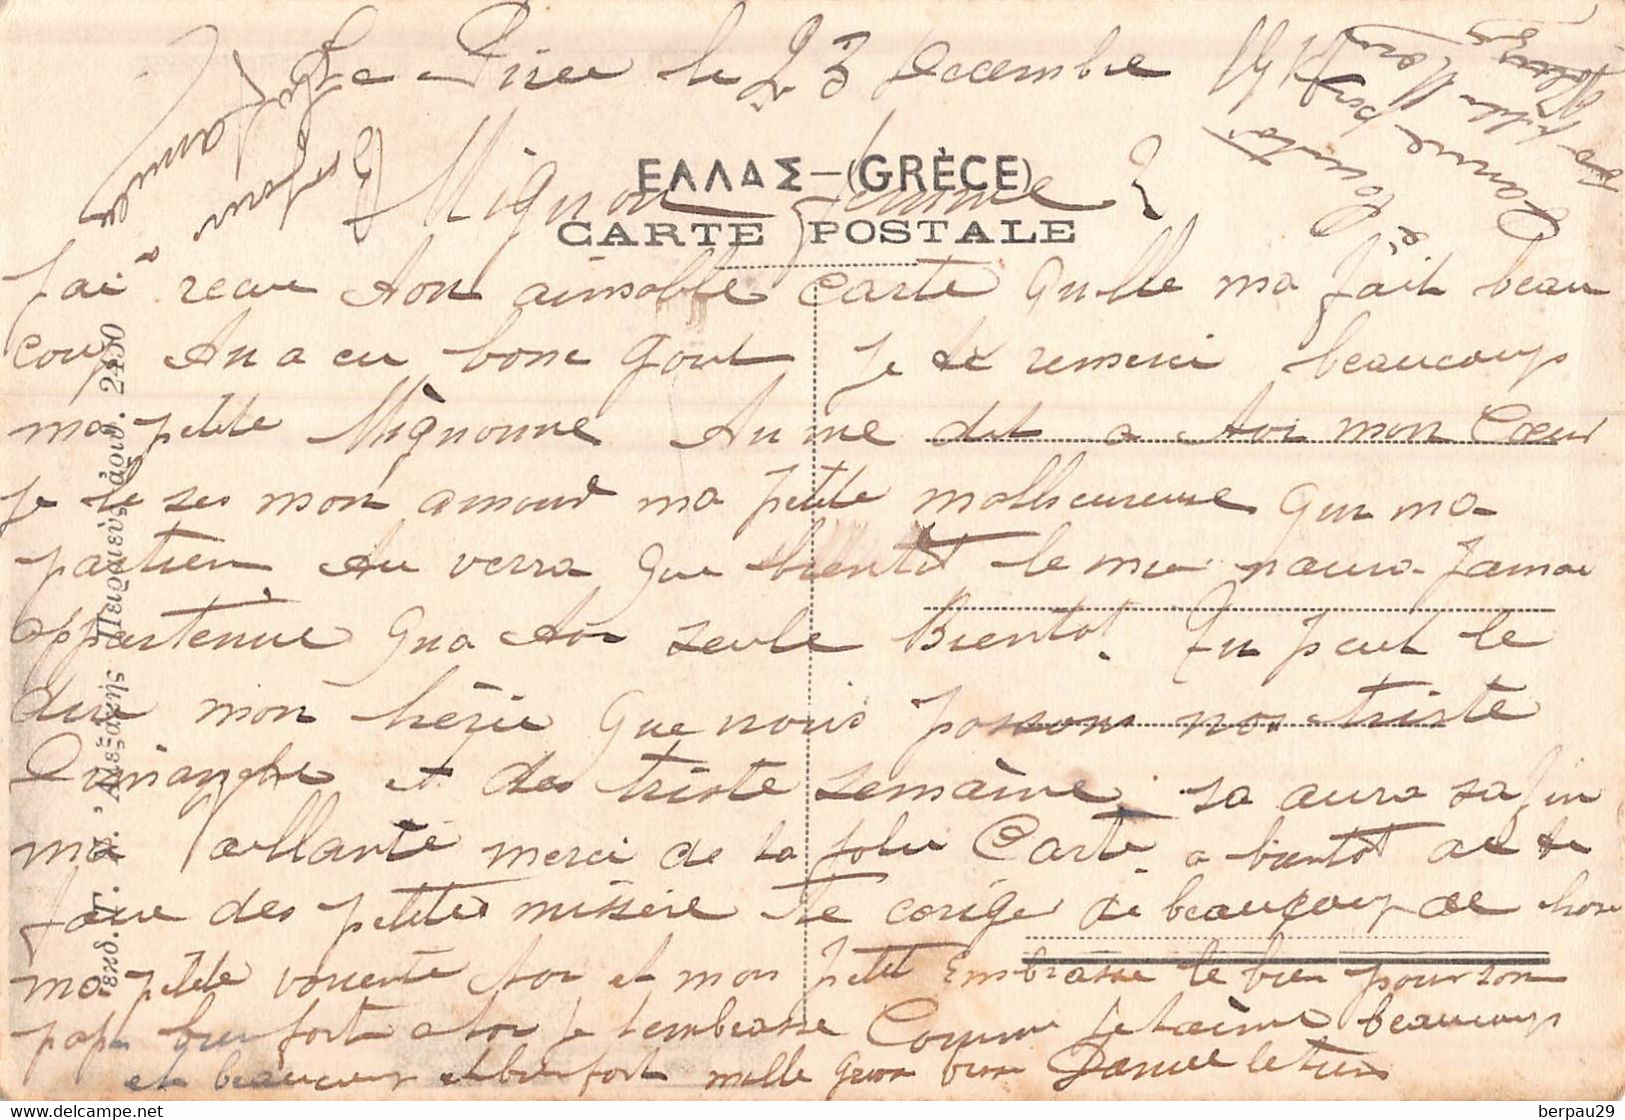 Le Pirée le 23 Decembre 1917
ΕΛΛΑΣ-(GRÈCE)
Mignon femme
CARTE POSTALE
J'ai recue ton aimable carte Qu'elle ma fait beau
coup Tu a eu bone gout Je te remerci beaucoup
ma petite Mignonne Tu me dit a toi mon Cœur
Je le ses mon amour ma petite malheureuse Qui ma
partien, tu verra Que bientôt le mien naura Jamai
appartenue Qua toi seule Bientot. Tu peut le
dire mon chérie Que nous passons nos triste
Dimanche et des triste semaine sa aura sa fin
ma Vaillante merci de ta jolie Carte a bientôt de te
faire des petite missère te corigé de beaucoup de chose
ma petite toi et mon petit Embrasse le bien pour son
papa bien fort a toi Je t'embrasse Comme Je t'aime beaucoup
et beaucoup et bien fort mille Gros Daniel le tien
ἐκδ. Γ. Ν. Ἀλεξάκης Πειραιεὺς ἀριθ. 2430
berpau29